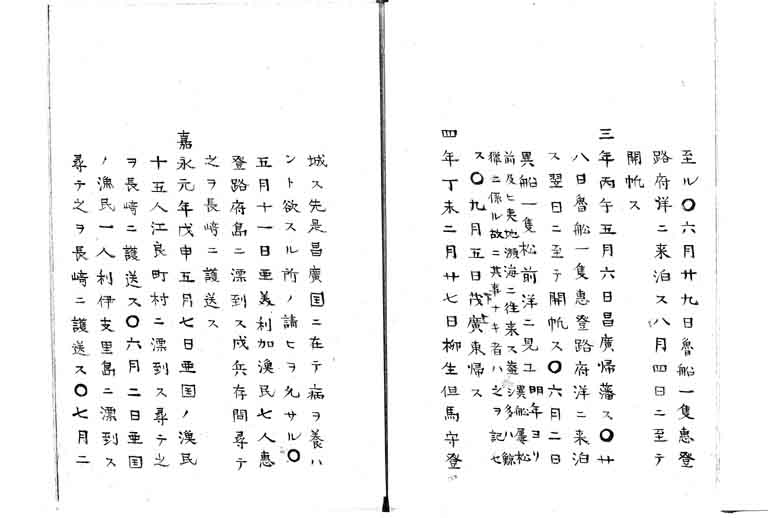 至ル〇六月廿九日魯船一隻惠登
路府洋ニ来泊ス八月四日ニ至テ
開帆ス
三年丙午五月六日昌廣帰藩ス〇廿
八日魯船一隻惠登路府洋ニ来泊
ス翌日ニ至テ開帆ス〇六月二日
異船一隻松前洋ニ見ユ明年ヨリ異船屢松
前及ヒ夷地瀕海ニ往来ス蓋シ多ハ鯨
猟ニ係ル故ニ其事ナキ者ハ之ヲ記セ
ス〇九月五日茂廣東帰ス
四年丁未二月廿七日柳生但馬守登
城ス先是昌廣国ニ在テ病ヲ養ハ
ント欲スル所ノ請ヒヲ允サル〇
五月十一日亜美利加漁民七人惠
登路府島ニ漂到ス戍兵存問尋テ
之ヲ長崎ニ護送ス
嘉永元年戊申五月七日亜国ノ漁民
十五人江良町村ニ漂到ス尋テ之
ヲ長崎ニ護送ス〇六月二日亜国
ノ漁民一人利伊支里島ニ漂到ス
尋テ之ヲ長崎ニ護送ス〇七月二